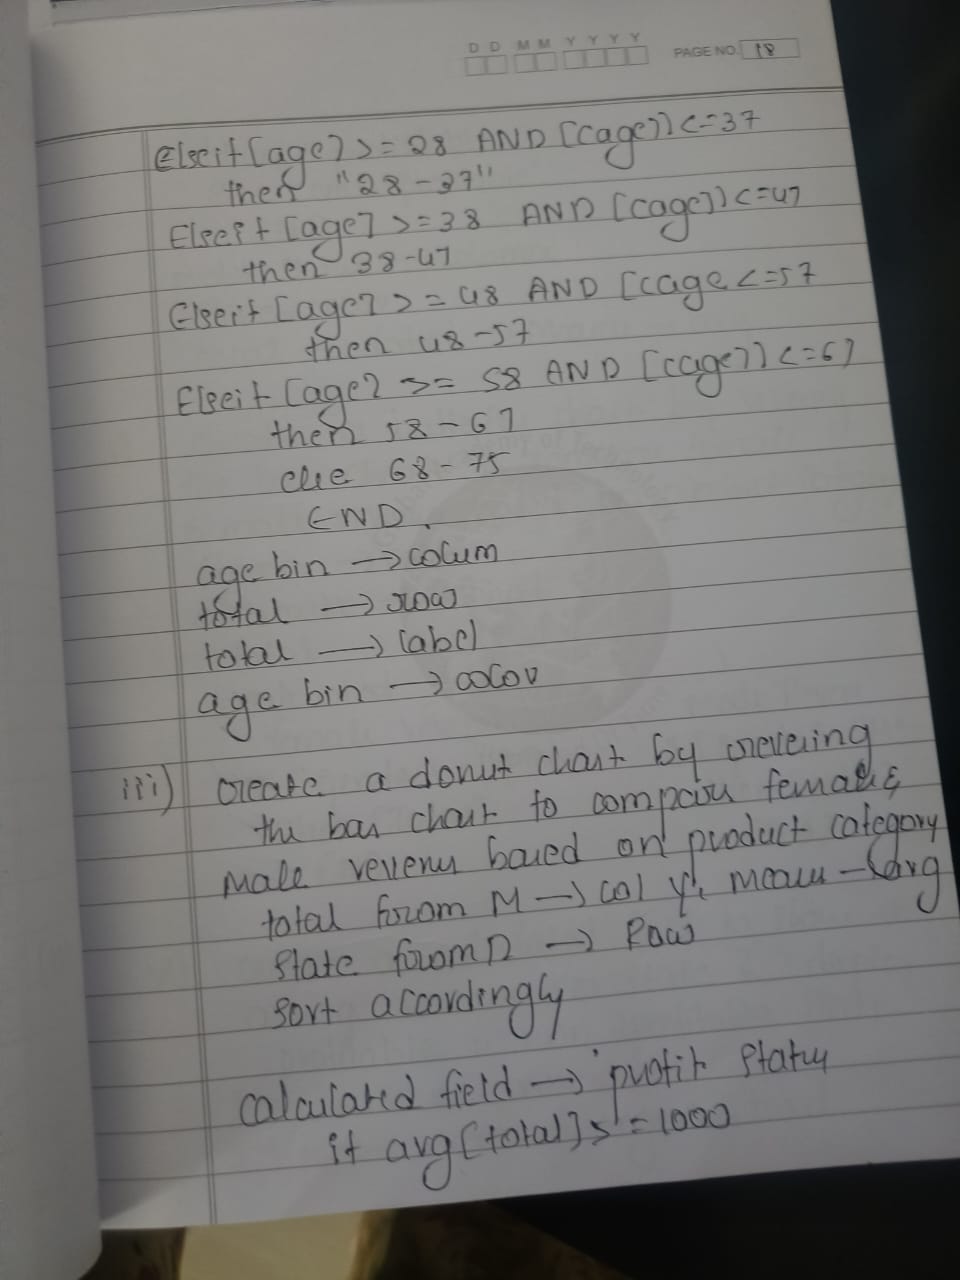 D D M M Y Y Y Y PAGE NO. 18
Elseif [age] >= 28 AND [cage]) <= 37
then "28-37"
Elseif [age] >= 38 AND [cage]) <= 47
then 38-47
Elseif [age] >= 48 AND [cage <= 57
then 48-57
Elseif [age] >= 58 AND [cage]) <= 67
then 58-67
else 68-75
END.
age bin → colum
total → row
total → label
age bin → color
iii) create a donut chart by
the bar chart to female &
Male based on product category
total from M → col
State from D → Row
Sort accordingly
calculated field → profit status
if avg [total] >= 1000